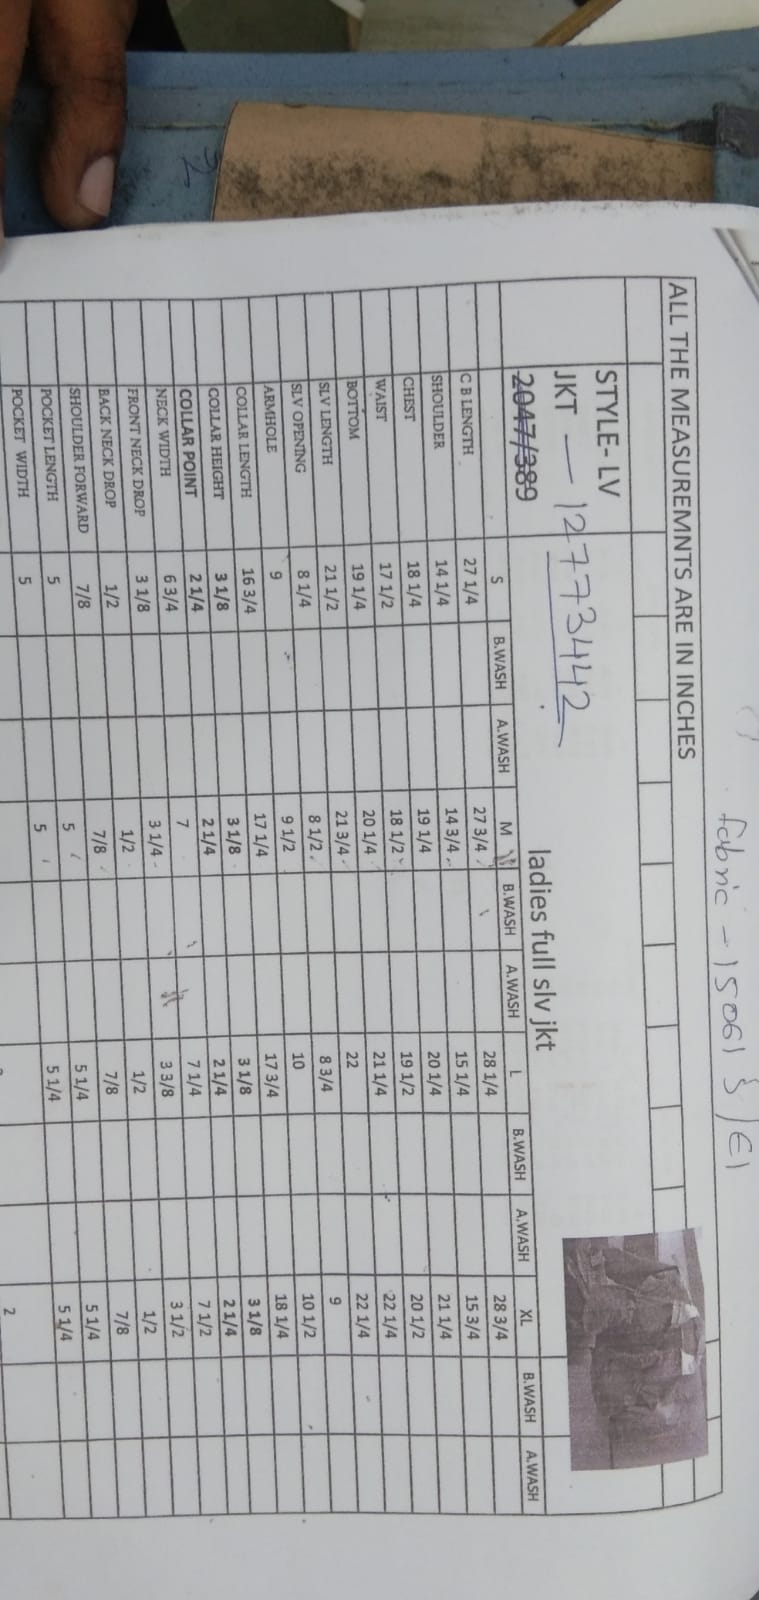 fabric - 15061 S/E1
ALL THE MEASUREMNTS ARE IN INCHES
STYLE- LV
JKT — 12773442
2047/389 ladies full slv jkt
S B.WASH A.WASH M B.WASH A.WASH L B.WASH A.WASH XL B.WASH A.WASH
C B LENGTH 27 1/4 27 3/4 28 1/4 28 3/4
SHOULDER 14 1/4 14 3/4 15 1/4 15 3/4
CHEST 18 1/4 19 1/4 20 1/4 21 1/4
WAIST 17 1/2 18 1/2 19 1/2 20 1/2
BOTTOM 19 1/4 20 1/4 21 1/4 22 1/4
SLV LENGTH 21 1/2 21 3/4 22 22 1/4
SLV OPENING 8 1/4 8 1/2 8 3/4 9
ARMHOLE 9 9 1/2 10 10 1/2
COLLAR LENGTH 16 3/4 17 1/4 17 3/4 18 1/4
COLLAR HEIGHT 3 1/8 3 1/8 3 1/8 3 1/8
COLLAR POINT 2 1/4 2 1/4 2 1/4 2 1/4
NECK WIDTH 6 3/4 7 7 1/4 7 1/2
FRONT NECK DROP 3 1/8 3 1/4 3 3/8 3 1/2
BACK NECK DROP 1/2 1/2 1/2 1/2
SHOULDER FORWARD 7/8 7/8 7/8 7/8
POCKET LENGTH 5 5 5 1/4 5 1/4
POCKET WIDTH 5 5 5 1/4 5 1/4
2
2